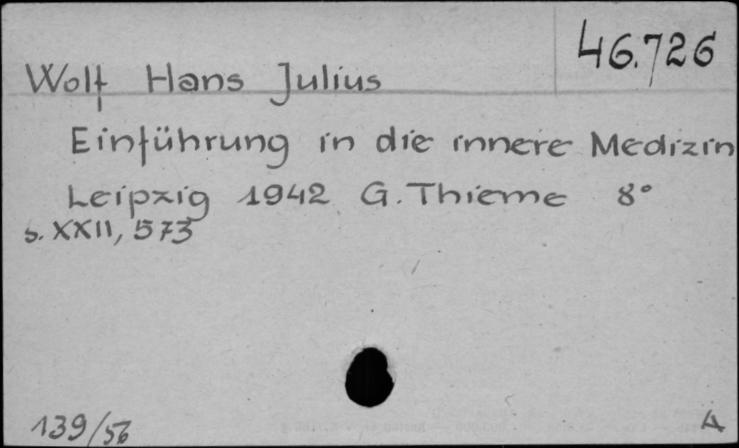 46.726
Wolf Hans Julius
Einführung in die innere Medizin
Leipzig 1942 G. Thieme 8°
s. XXII, 573
139/56
A